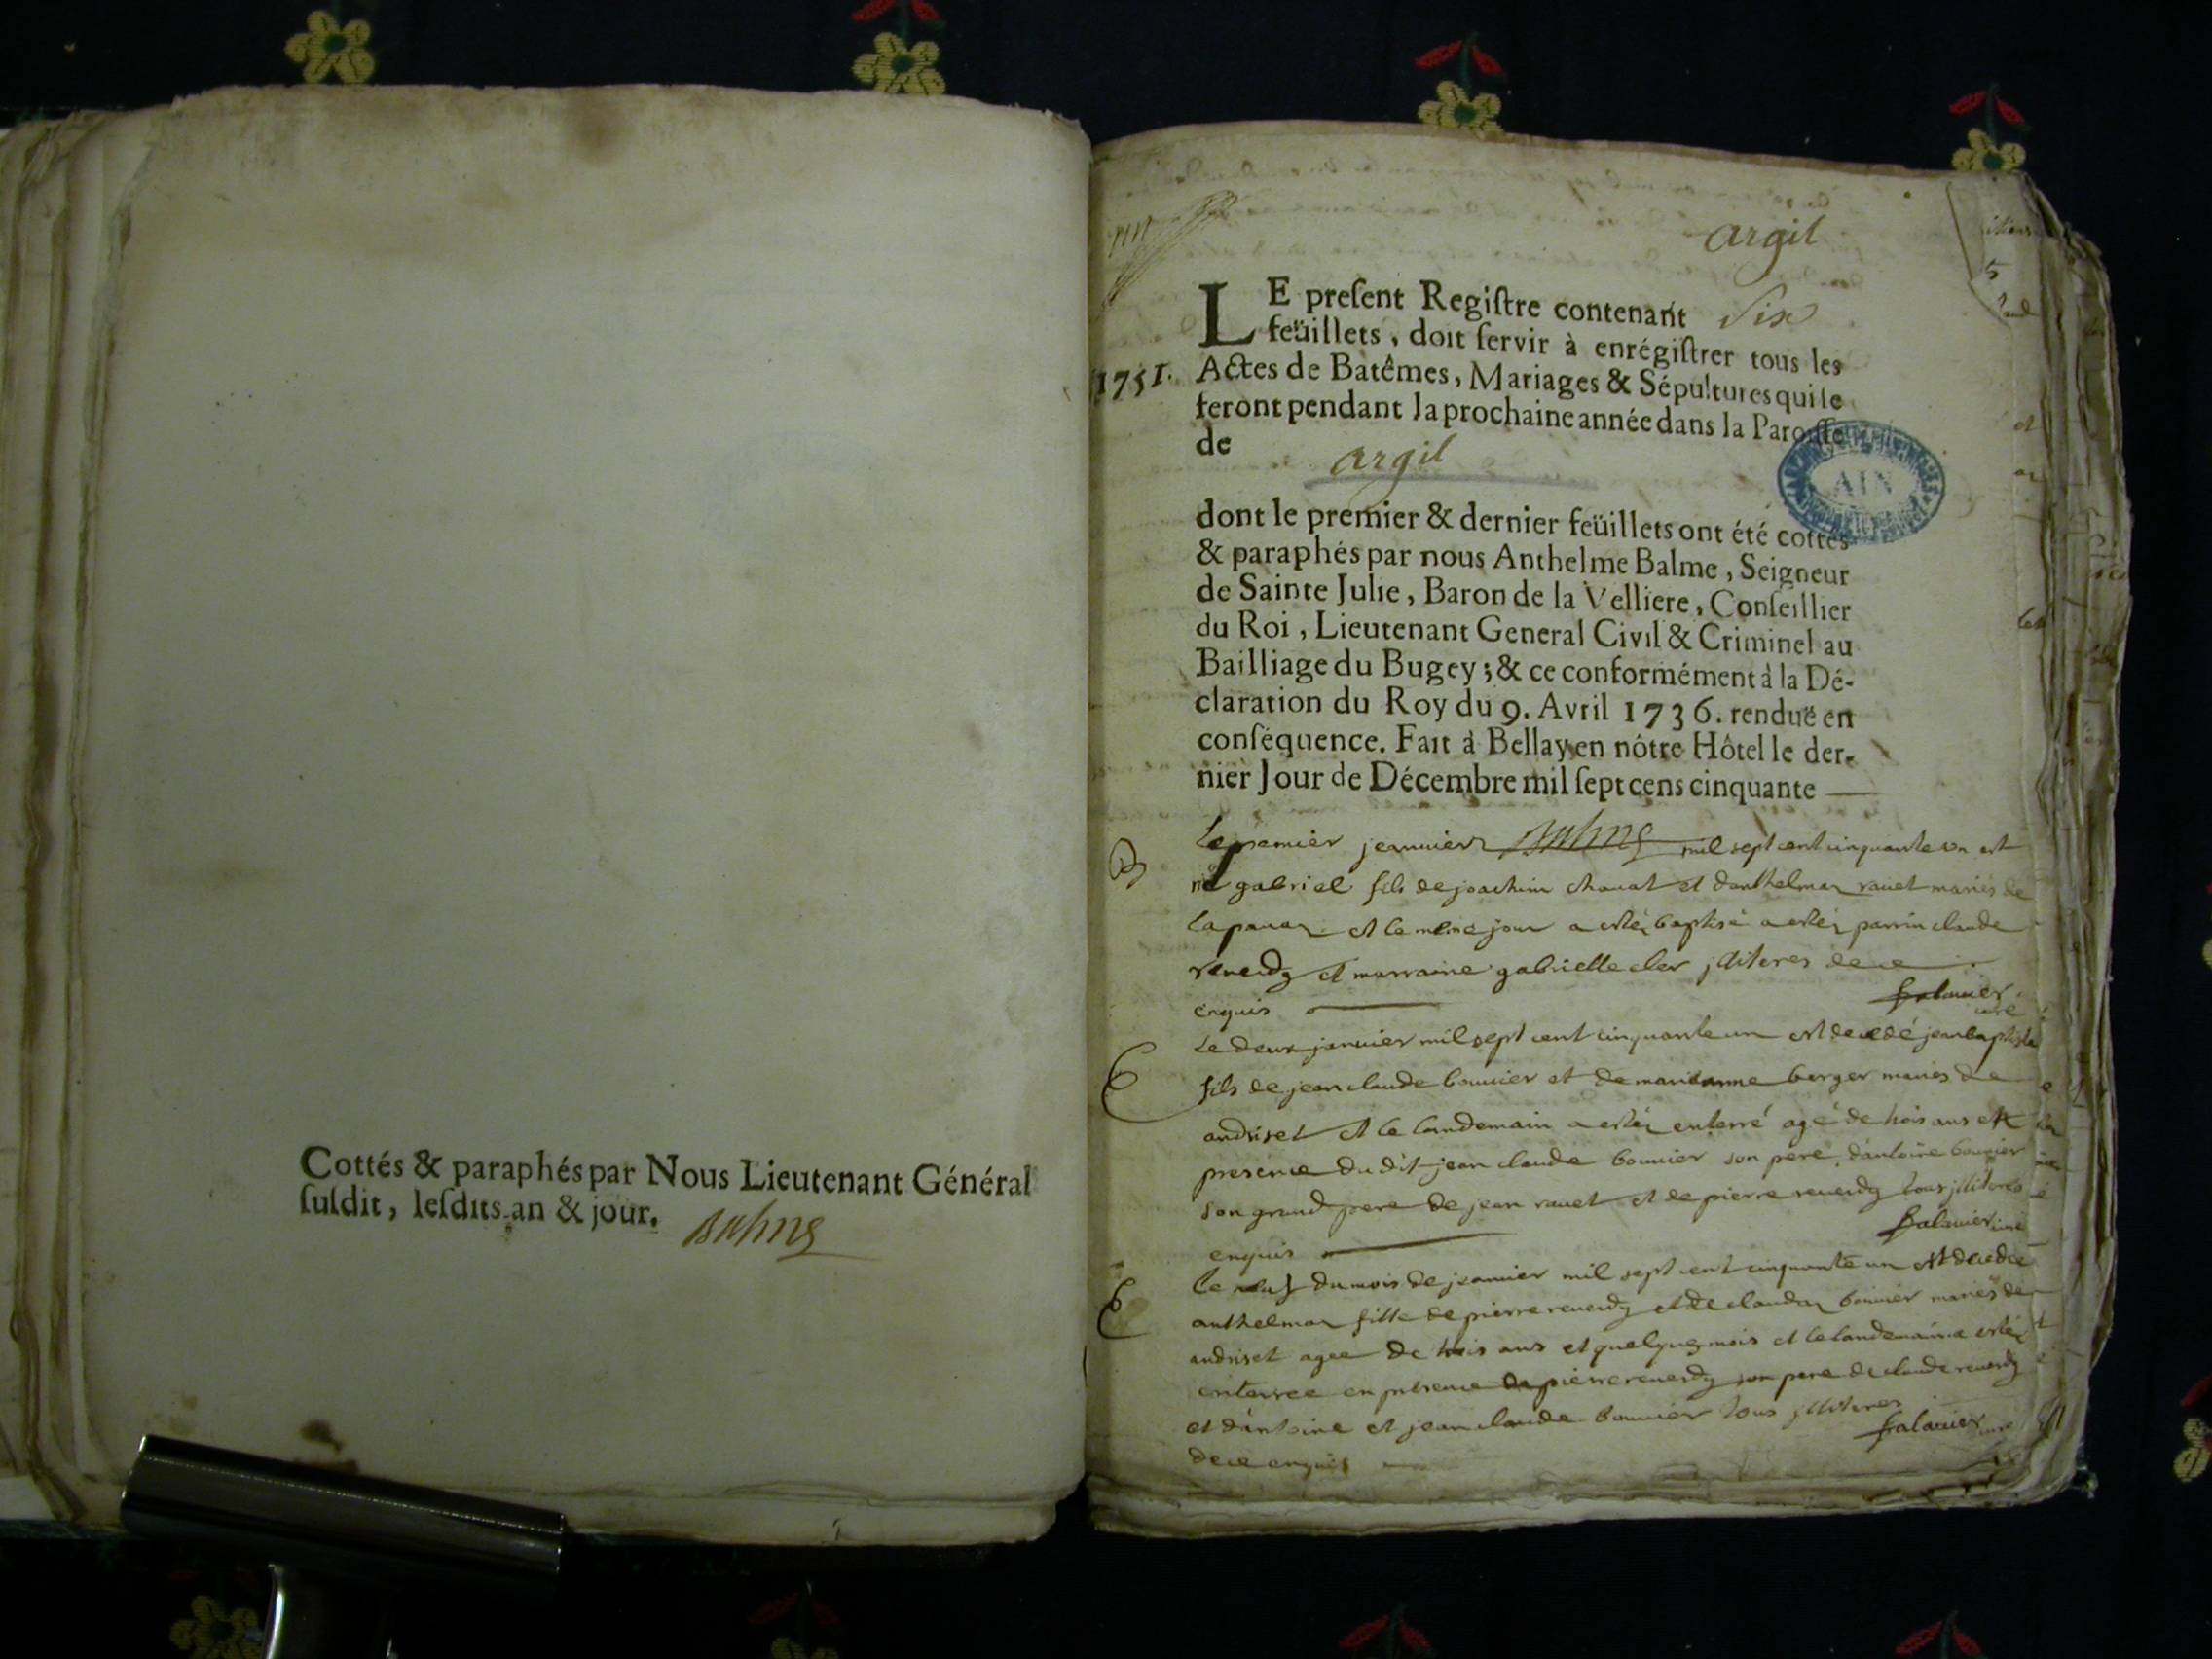 Cottés & paraphés par Nous Lieutenant Général
ſuſdit, leſdits an & jour.
Balme
argil
LE preſent Regiſtre contenant Six
feüillets, doit ſervir à enrégiſtrer tous les
1751. Actes de Batêmes, Mariages & Sépultures qui ſe
feront pendant la prochaine année dans la Paroiſſe
de argil
AIN
dont le premier & dernier feüillets ont été cottés
& paraphés par nous Anthelme Balme, Seigneur
de Sainte Julie, Baron de la Velliere, Conſeillier
du Roi, Lieutenant General Civil & Criminel au
Bailliage du Bugey; & ce conformément à la Dé-
claration du Roy du 9. Avril 1736. renduë en
conſéquence. Fait à Bellay en nôtre Hôtel le der-
nier Jour de Décembre mil ſept cens cinquante
Le premier jeanvier Balme mil sept cent cinquante un est
né gabriel fils de joachim chavat et danthelmaz ravet mariés de
lapavaz et le meme jour a estéz baptisé a estéz parrin claude
reverdy et marraine gabrielle cler illiteres de ce
enquis
Balavier curé
Le deux janvier mil sept cent cinquante un est decedé jean baptiste
fils de jean claude bouvier et de marianne berger mariés de
andriset et le landemain a estéz enterré agé de trois ans en
presence du dit jean claude bouvier son pere, dantoine bouvier
son grand pere de jean ravet et de pierre reverdy tous illiteres
enquis
Balavier curé
le neuf du mois de jeanvier mil sept cent cinquante un est decedée
anthelmaz fille de pierre reverdy et de claudaz bouvier mariés de
andriset agee de trois ans et quelque mois et le landemain a estéz
enterree en presence de pierre reverdy son pere de claude reverdy
et dantoine et jean claude bouvier tous illiteres
de ce enquis
Balavier curé